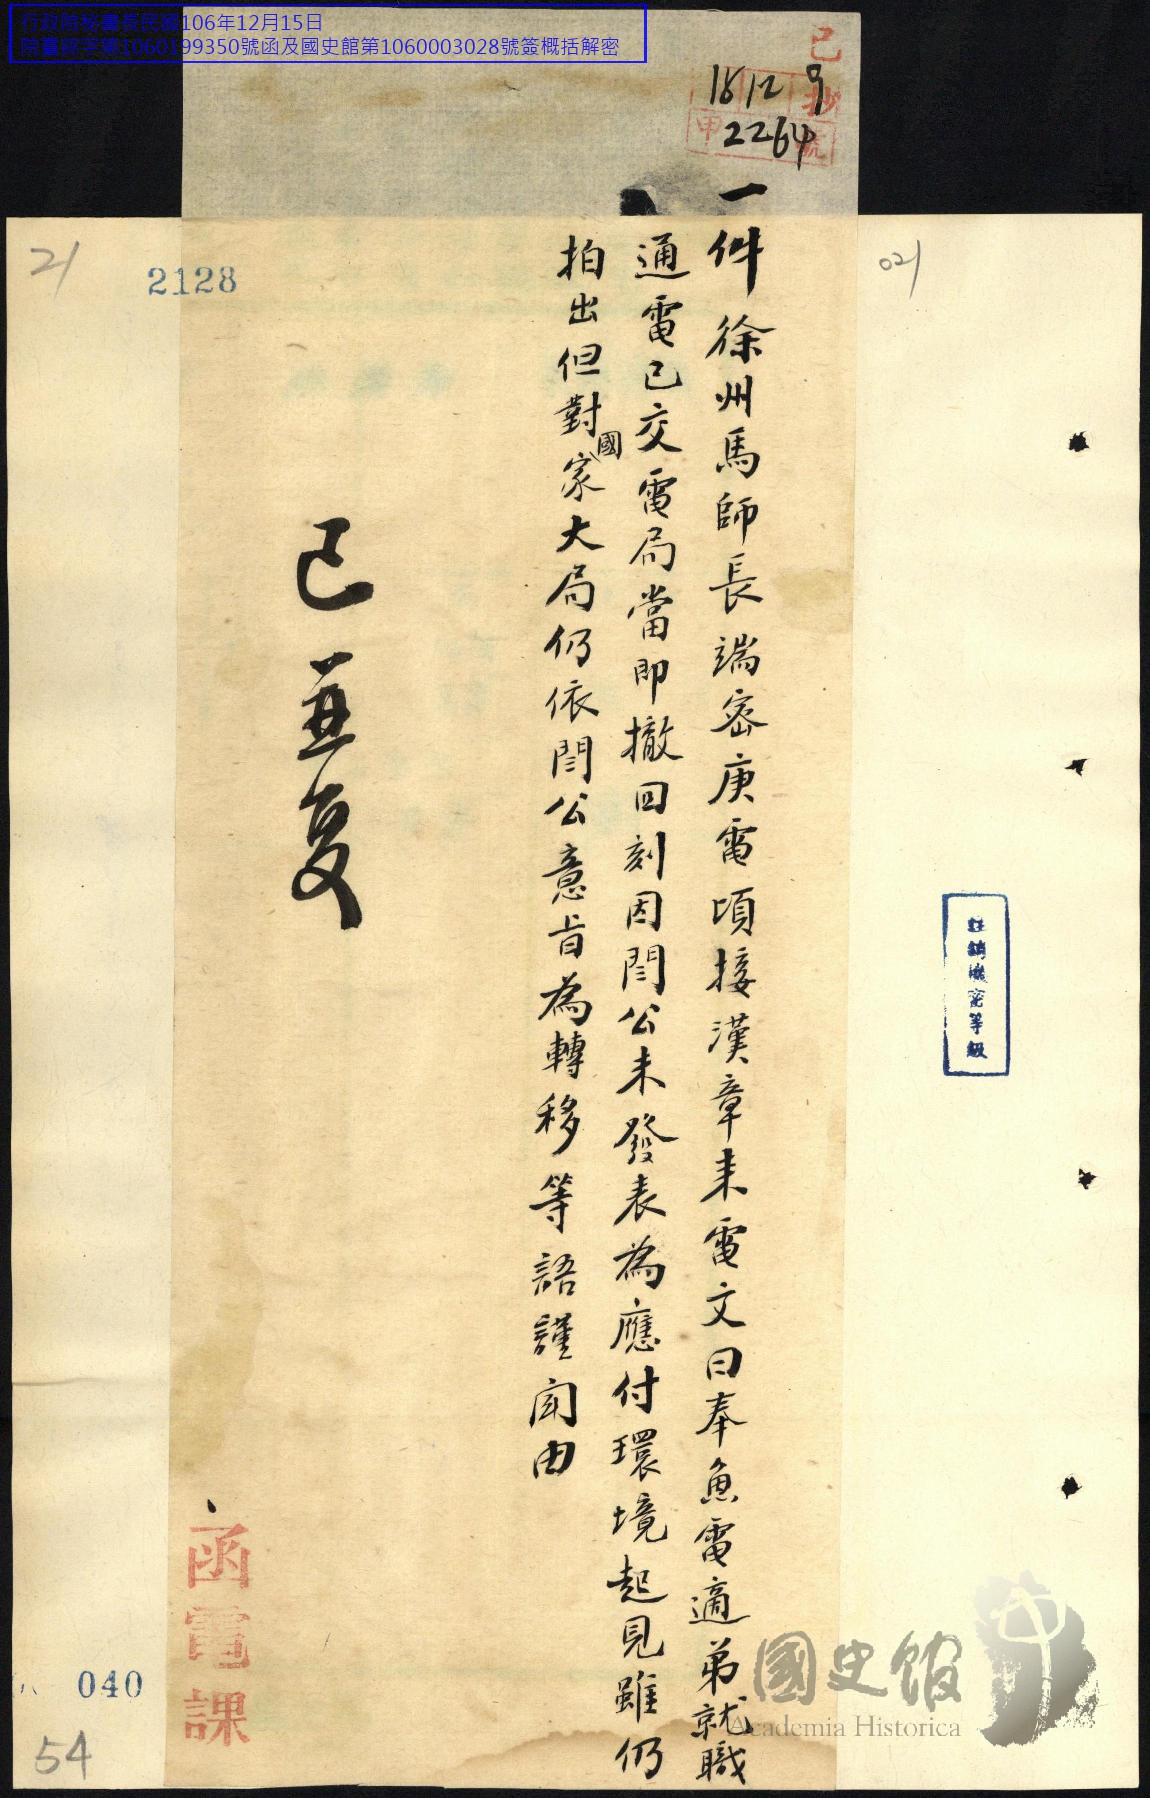 行政院秘書長民國106年12月15日
院臺綜字第1060199350號函及國史館第1060003028號簽概括解密
已抄
18 12 9
甲 2264 號
021
一件徐州馬師長端密庚電頃接漢章来電文曰奉魚電適弟就職
通電已交電局當即撤回刻因閻公未發表為應付環境起見雖仍
拍出但對國家大局仍依閻公意旨為轉移等語謹聞由
已並复
註銷機密等級
21
2128
函電課
040
54
國史館
Academia Historica